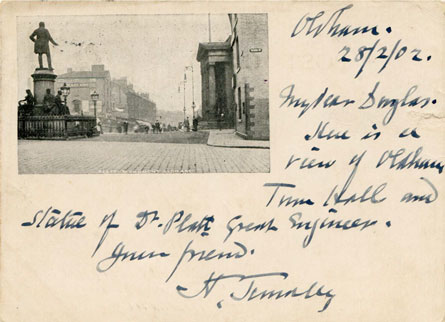 Oldham.
28/2/02.
My dear Douglas.
Here is a
view of Oldham
Town Hall and
Statue of Dr. Platt Great Engineer.
Your friend.